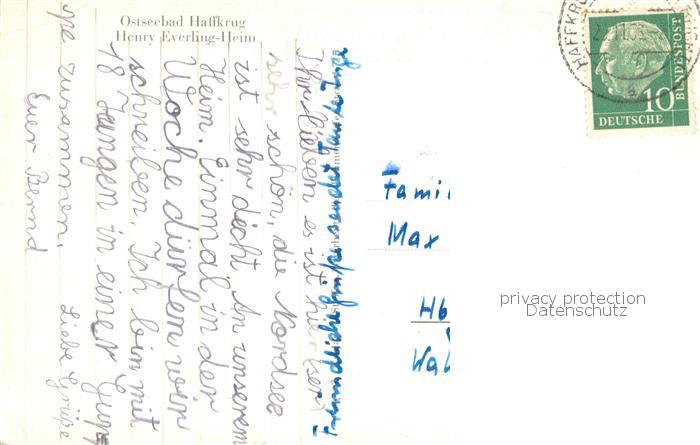 Ostseebad Haffkrug
Henry Everling-Heim
Ihr lieben es ist hier (ser)
sehr schön, die Nordsee
ist sehr dicht An unserem
Heim. Einmal in der
Woche dürfen wir
schreiben. Ich bin mit
18 Jungen in einer Grup
pe zusammen.
Liebe Grüße
Euer Bernd
Freundliche Grüße sendet Tante Inge
Fami
Max
Hb
Wal
HAFFKRU
10
DEUTSCHE
BUNDESPOST
privacy protection
Datenschutz